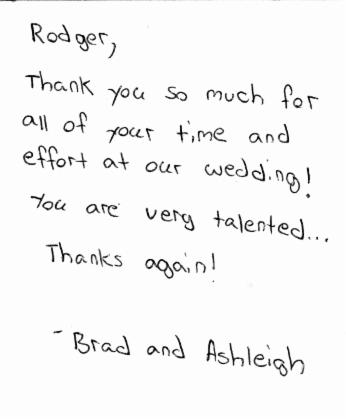 Rodger,
Thank you so much for
all of your time and
effort at our wedding!
You are very talented...
Thanks again!
- Brad and Ashleigh